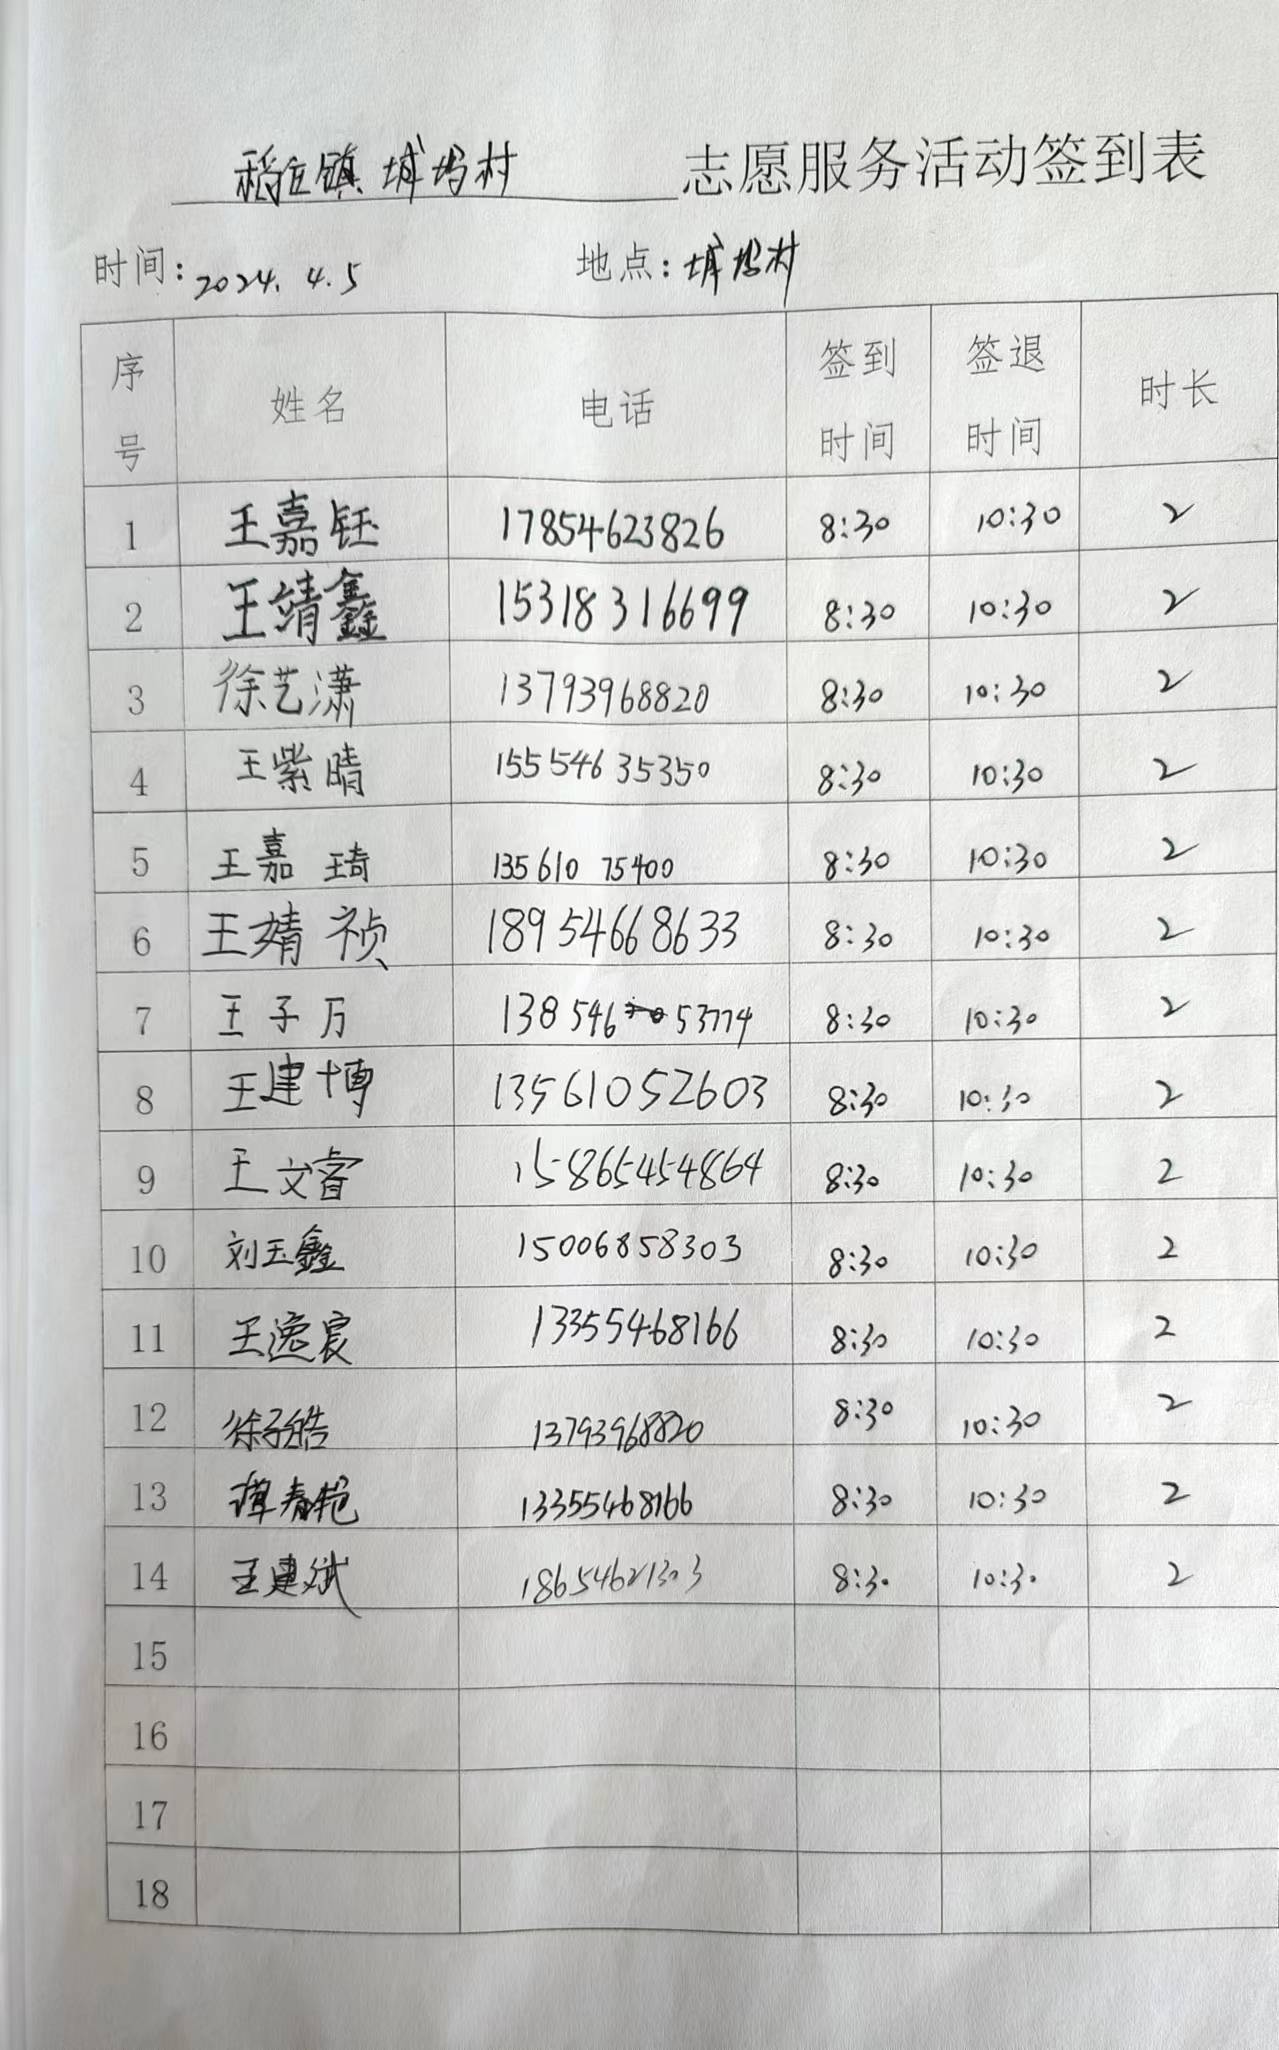 稻庄镇 城坞村 志愿服务活动签到表
时间:2024.4.5 地点:城坞村
序号 姓名 电话 签到时间 签退时间 时长
1 王嘉钰 17854623826 8:30 10:30 2
2 王靖鑫 15318316699 8:30 10:30 2
3 徐艺潇 13793968820 8:30 10:30 2
4 王紫晴 15554635350 8:30 10:30 2
5 王嘉琦 13561075400 8:30 10:30 2
6 王婧祯 18954668633 8:30 10:30 2
7 王子万 13854653774 8:30 10:30 2
8 王建博 13561052603 8:30 10:30 2
9 王文睿 15865454864 8:30 10:30 2
10 刘玉鑫 15006858303 8:30 10:30 2
11 王逸宸 13355468166 8:30 10:30 2
12 徐子皓 13793968820 8:30 10:30 2
13 谭春艳 13355468166 8:30 10:30 2
14 王建斌 18654621303 8:30 10:30 2
15
16
17
18